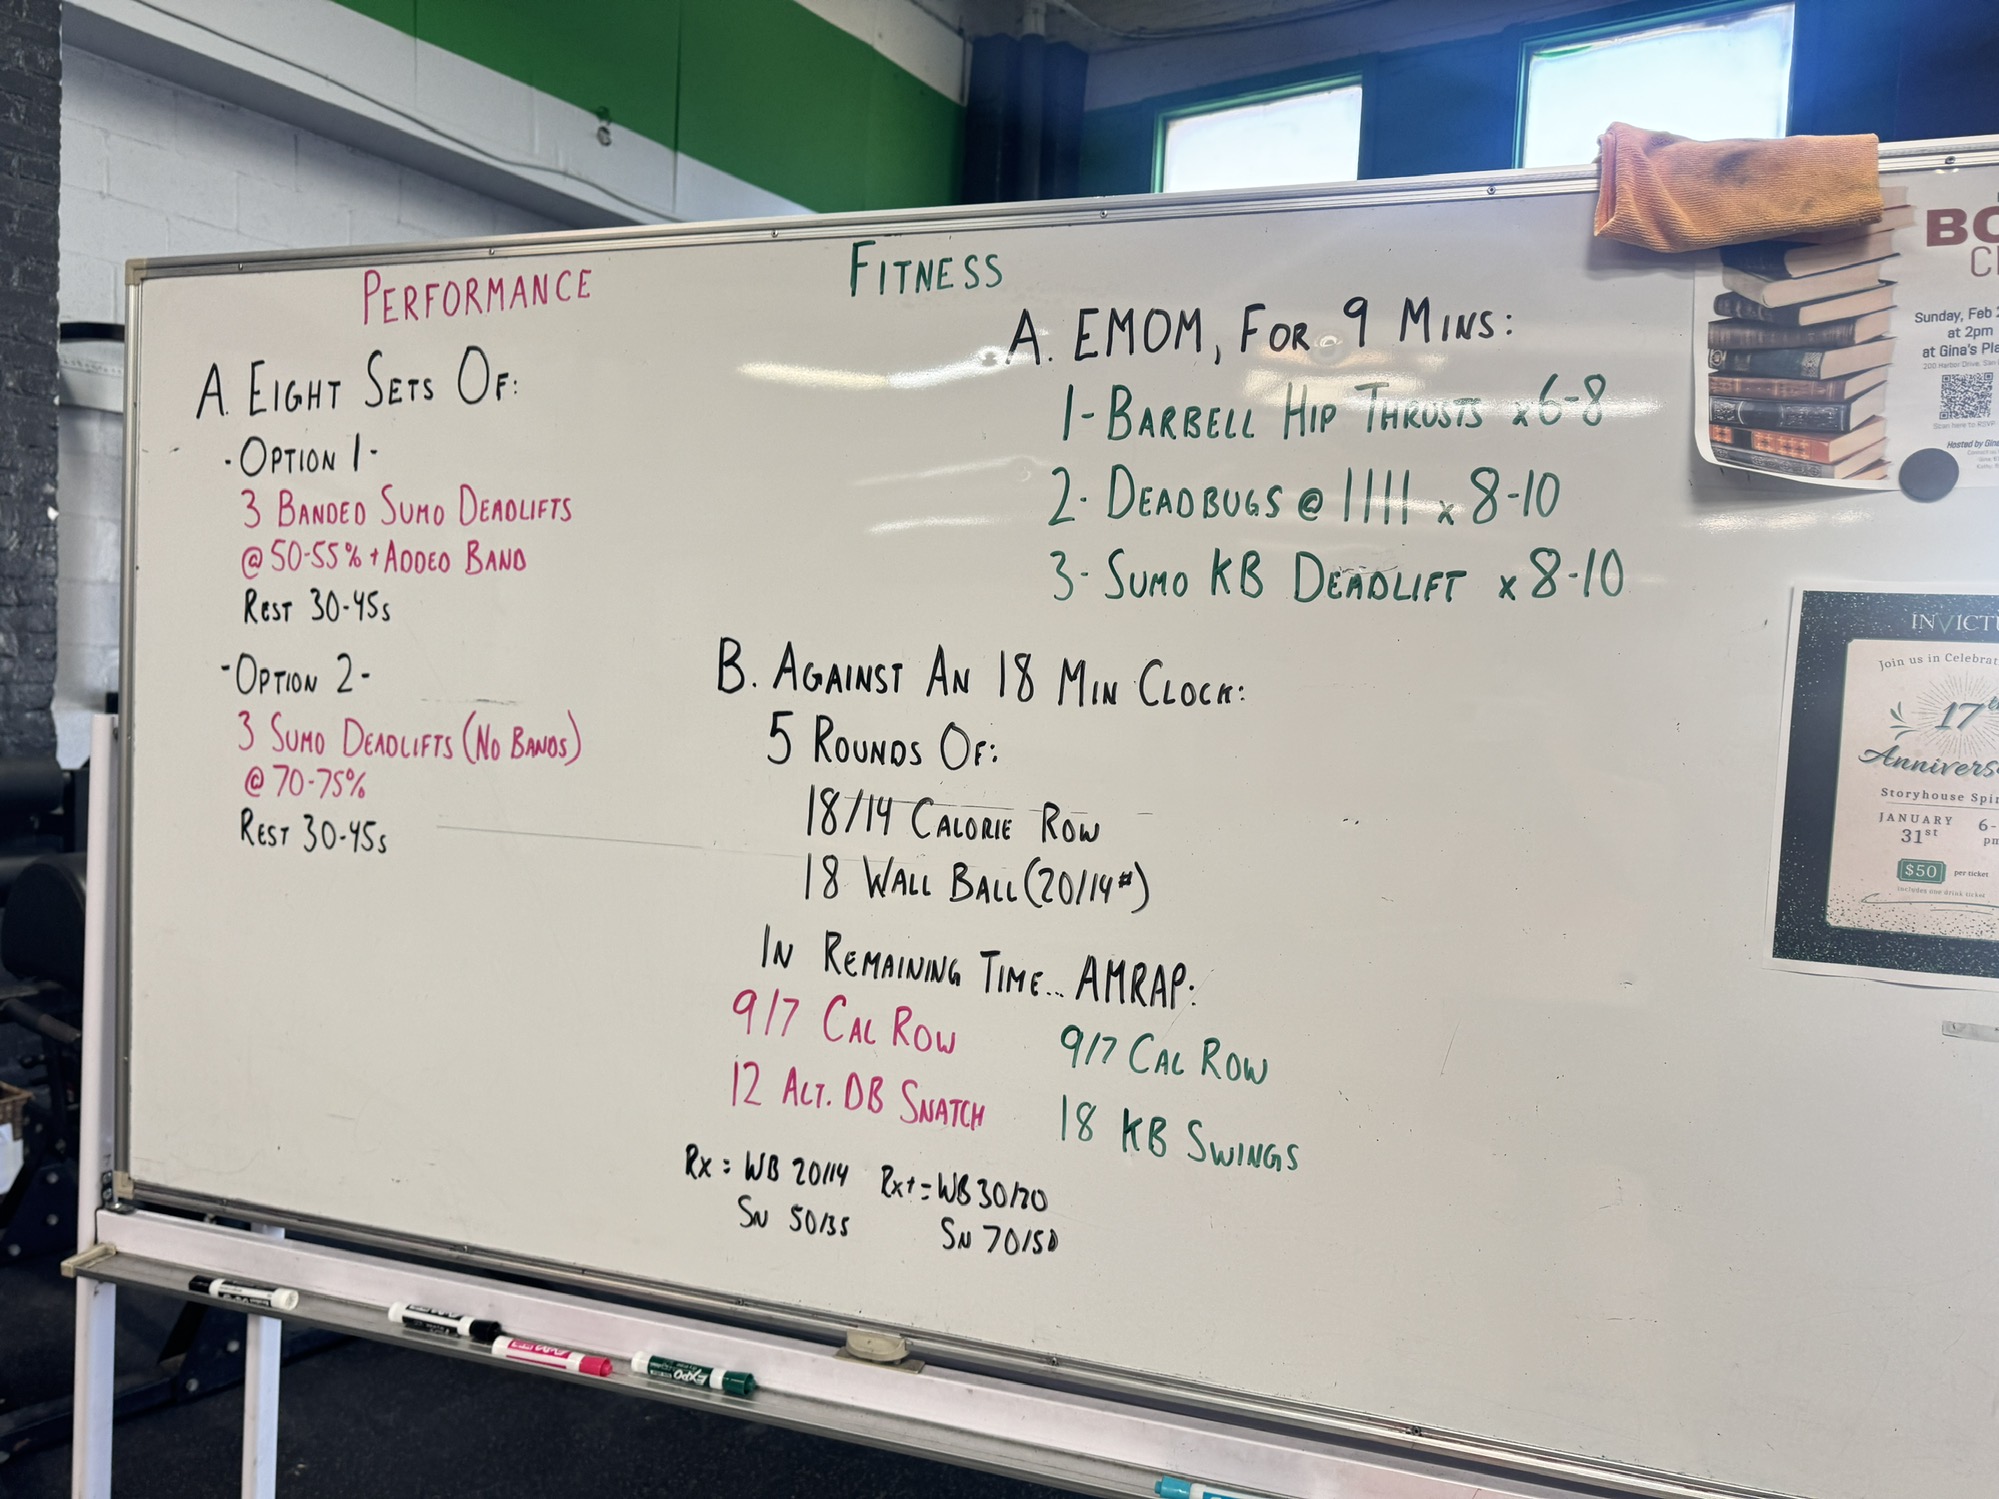 PERFORMANCE
A. EIGHT SETS OF:
-OPTION 1-
3 BANDED SUMO DEADLIFTS
@ 50-55% + ADDED BAND
REST 30-45s
-OPTION 2-
3 SUMO DEADLIFTS (NO BANDS)
@ 70-75%
REST 30-45s
FITNESS
A. EMOM, FOR 9 MINS:
1- BARBELL HIP THRUSTS x6-8
2- DEADBUGS @ 1111 x 8-10
3- SUMO KB DEADLIFT x 8-10
B. AGAINST AN 18 MIN CLOCK:
5 ROUNDS OF:
18/14 CALORIE ROW
18 WALL BALL (20/14#)
IN REMAINING TIME... AMRAP:
9/7 CAL ROW
12 ALT. DB SNATCH
9/7 CAL ROW
18 KB SWINGS
Rx = WB 20/14
SN 50/35
Rx+ = WB 30/20
SN 70/50
Sunday, Feb
at 2pm
at Gina's
200 Harbor Drive, San
Scan here to RSVP
Hosted by
Join us in
17th
Storyhouse
JANUARY
31st
6-
$50
per ticket
Includes one drink ticket
EXPO